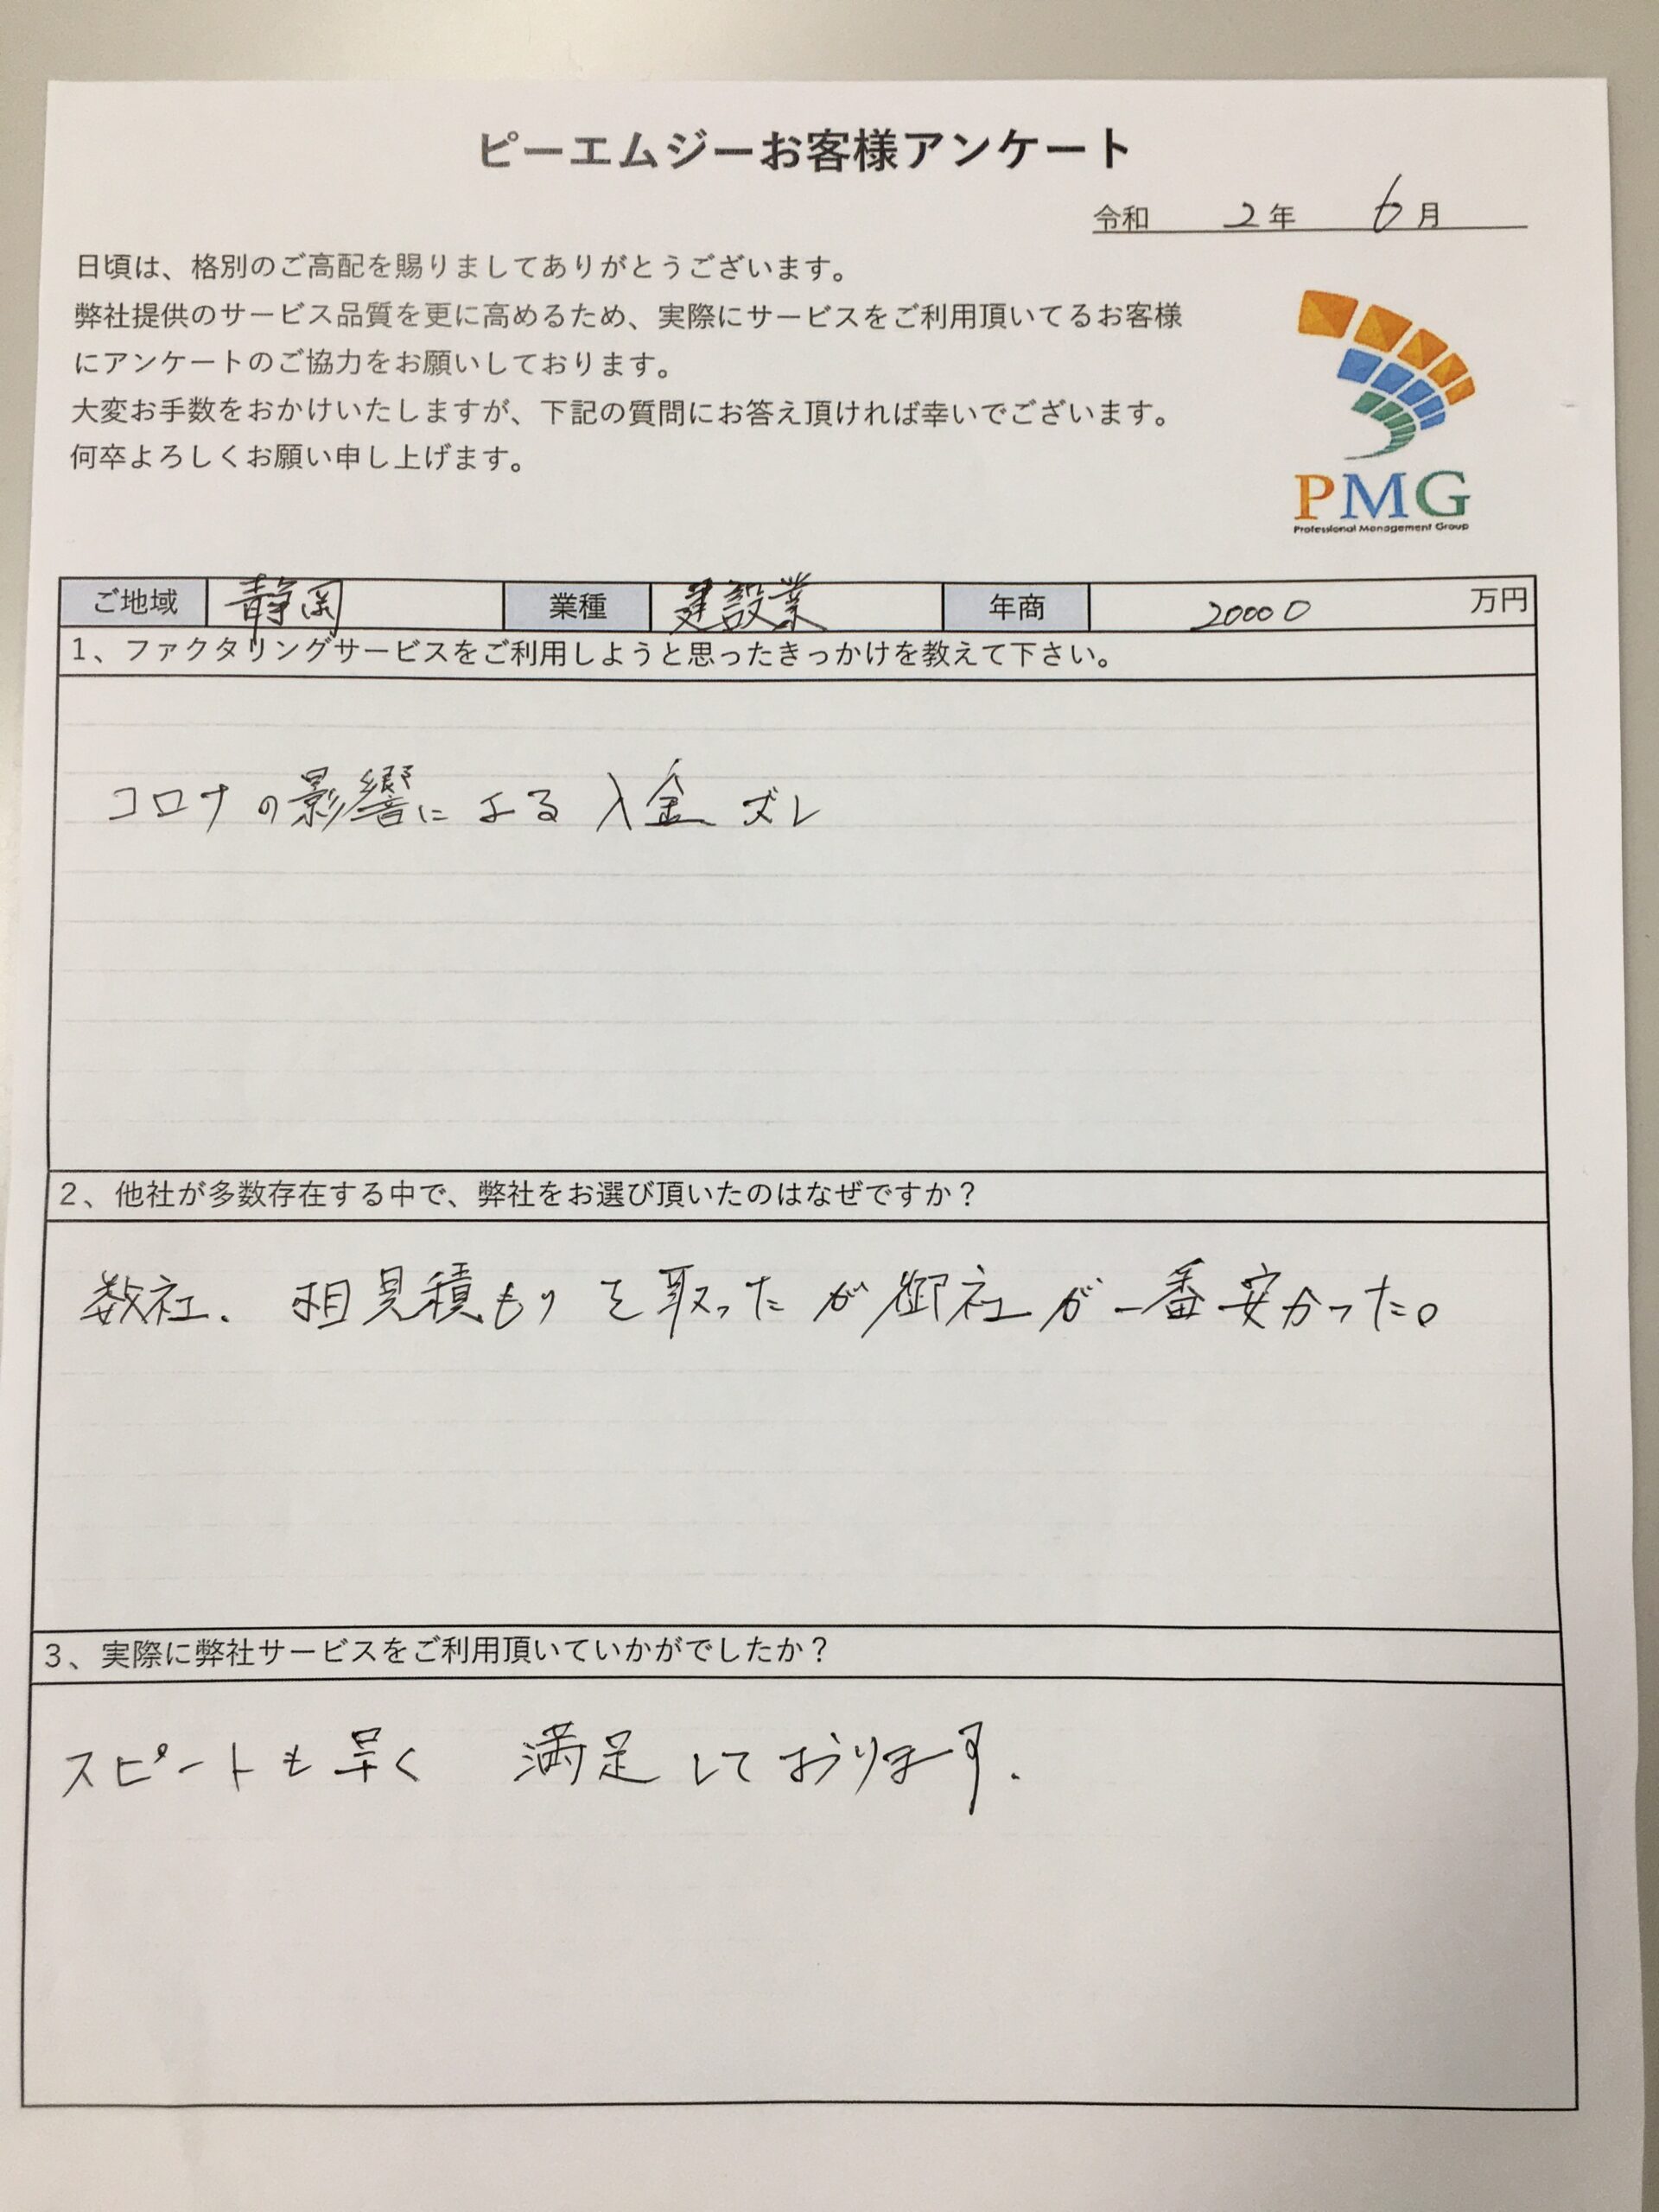 ピーエムジーお客様アンケート
令和 2年 6月
日頃は、格別のご高配を賜りましてありがとうございます。
弊社提供のサービス品質を更に高めるため、実際にサービスをご利用頂いてるお客様
にアンケートのご協力をお願いしております。
大変お手数をおかけいたしますが、下記の質問にお答え頂ければ幸いでございます。
何卒よろしくお願い申し上げます。
PMG
Professional Management Group
ご地域 静岡 業種 建設業 年商 20000 万円
1、ファクタリングサービスをご利用しようと思ったきっかけを教えて下さい。
コロナの影響による入金ズレ
2、他社が多数存在する中で、弊社をお選び頂いたのはなぜですか？
数社、相見積もりを取ったが御社が一番安かった。
3、実際に弊社サービスをご利用頂いていかがでしたか？
スピートも早く 満足しております.